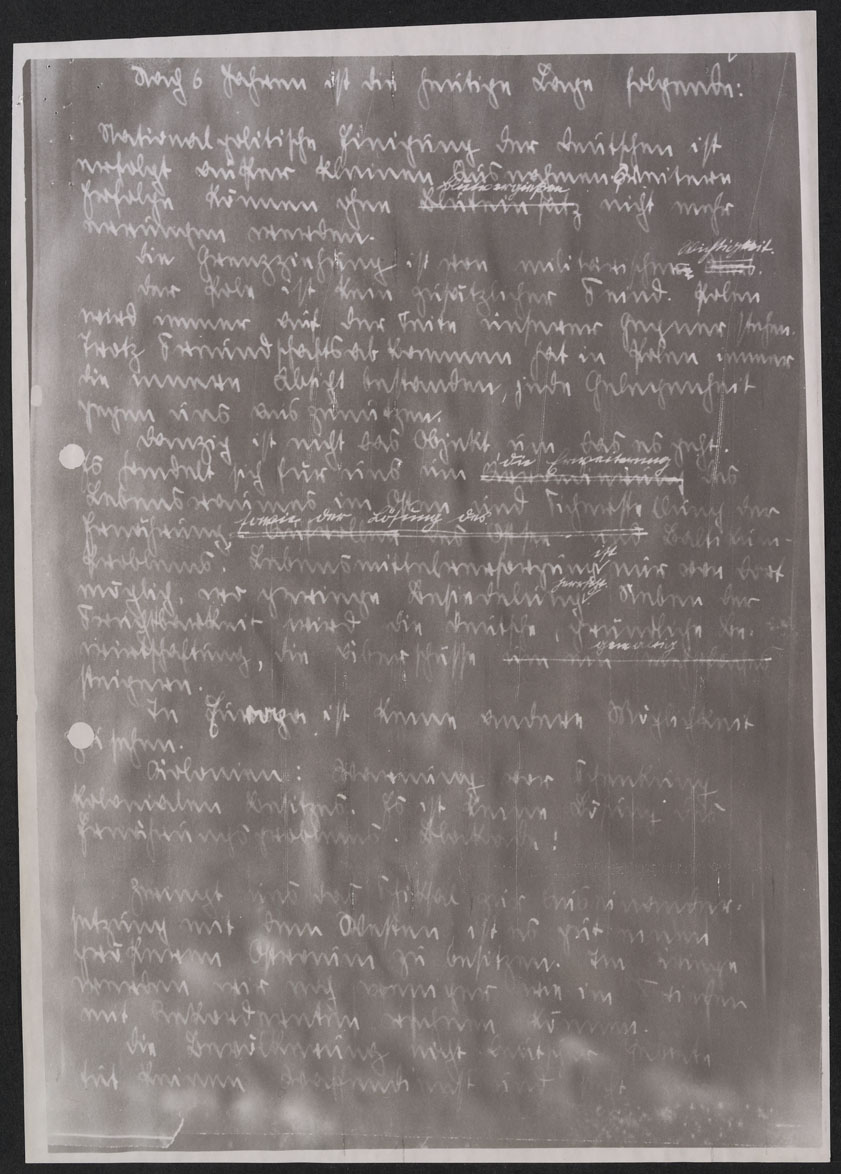 Nach 6 Jahren ist die heutige Lage folgende:
Nationalpolitische Einigung der Deutschen ist
erfolgt außer kleinen Ausnahmen. Weitere
Blutvergießen
Erfolge können ohne Bluteinsatz nicht mehr
errungen werden.
Wichtigkeit.
Die Grenzziehung ist von militärischer
Der Pole ist kein zusätzlicher Feind. Polen
wird immer auf der Seite unserer Gegner stehen.
Trotz Freundschaftsabkommen hat in Polen immer
die innere Absicht bestanden, jede Gelegenheit
gegen uns auszunutzen.
Danzig ist nicht das Objekt um das es geht.
die Erweiterung
Es handelt sich für uns um des
Lebensraumes im Osten und Sicherstellung der
sowie der Lösung des
Ernährung Baltikum-
Problems. Lebensmittelversorgung ist nur von dort
herrscht.
möglich, wo geringe Besiedelung Neben der
Fruchtbarkeit wird die deutsche, gründliche Be-
gewaltig
wirtschaftung, die Überschüsse
steigern.
In Europa ist keine andere Möglichkeit
zu sehen.
Kolonien: Warnung vor Schenkung
kolonialen Besitzes. Es ist keine Lösung des
Ernährungsproblems. Blockade!
Zwingt uns das Schicksal zur Auseinander-
setzung mit dem Westen ist es gut einen
größeren Ostraum zu besitzen. Im Kriege
werden wir noch weniger wie im Frieden
mit Rekordernten rechnen können.
Die Bevölkerung nicht deutscher Gebiete
tut keinen Waffendienst und